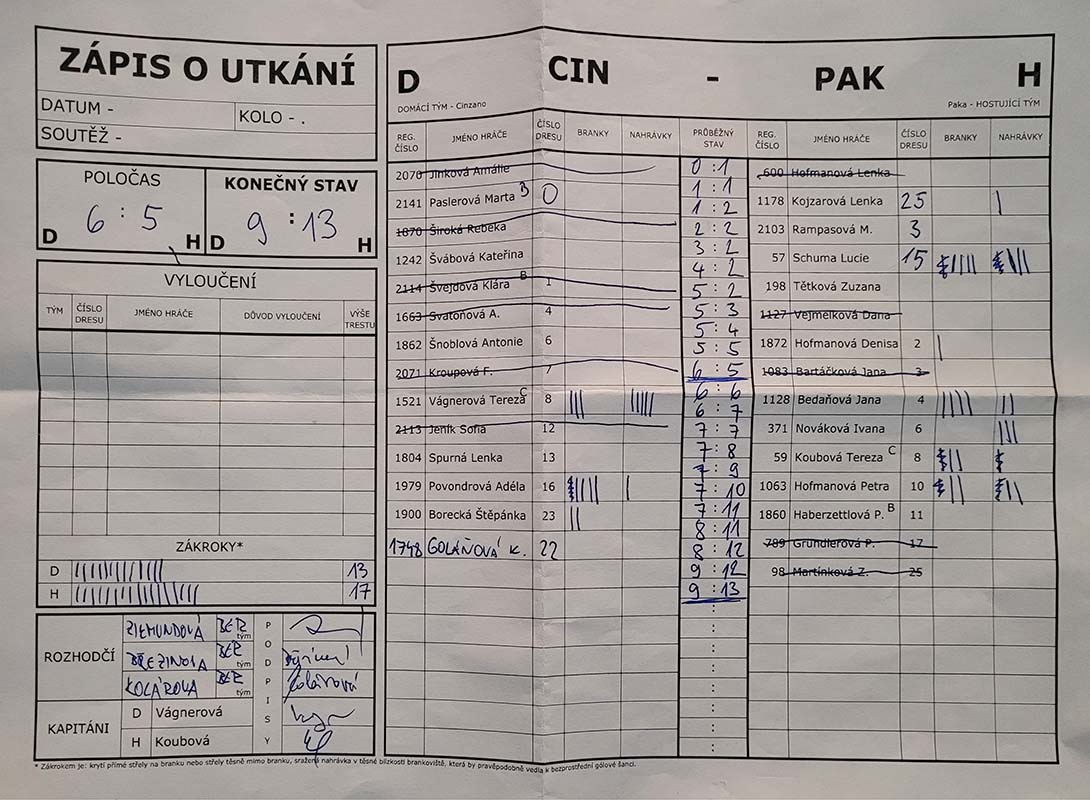 ZÁPIS O UTKÁNÍ
DATUM -
KOLO - .
SOUTĚŽ -
POLOČAS
6 : 5
D H
KONEČNÝ STAV
9 : 13
D H
VYLOUČENÍ
TÝM ČÍSLO DRESU JMÉNO HRÁČE DŮVOD VYLOUČENÍ VÝŠE TRESTU
ZÁKROKY*
D 13
H 17
ROZHODČÍ
ZIEMUNDOVÁ BER tým
BŘEZINOVA BER tým
KOLÁROVA BER tým
PODPISY
Kolárová
KAPITÁNI
D Vágnerová
H Koubová
D CIN - PAK H
DOMÁCÍ TÝM - Cinzano
Paka - HOSTUJÍCÍ TÝM
REG. ČÍSLO JMÉNO HRÁČE ČÍSLO DRESU BRANKY NAHRÁVKY PRŮBĚŽNÝ STAV REG. ČÍSLO JMÉNO HRÁČE ČÍSLO DRESU BRANKY NAHRÁVKY
2070 Jinková Amálie
2141 Paslerová Marta B 0
1870 Široká Rebeka
1242 Švábová Kateřina
2114 Švejdová Klára B 1
1663 Svatoňová A. 4
1862 Šnoblová Antonie 6
2071 Kroupová F. 7
1521 Vágnerová Tereza C 8 ||| |||||
2113 Jeník Sofia 12
1804 Spurná Lenka 13
1979 Povondrová Adéla 16 |
1900 Borecká Štěpánka 23 ||
1748 GOLÁŇOVÁ K. 22
0 : 1
1 : 1
1 : 2
2 : 2
3 : 2
4 : 2
5 : 2
5 : 3
5 : 4
5 : 5
6 : 5
6 : 6
6 : 7
7 : 7
7 : 8
7 : 9
7 : 10
7 : 11
8 : 11
8 : 12
9 : 12
9 : 13
600 Hofmanová Lenka
1178 Kojzarová Lenka 25 |
2103 Rampasová M. 3
57 Schuma Lucie 15
198 Tětková Zuzana
1127 Vejmelková Dana
1872 Hofmanová Denisa 2 |
1083 Bartáčková Jana 3
1128 Bedaňová Jana 4 |||| ||
371 Nováková Ivana 6 |||
59 Koubová Tereza C 8
1063 Hofmanová Petra 10
1860 Haberzettlová P. B 11
789 Grundlerová P. 17
98 Martínková Z. 25
* Zákrokem je: krytí přímé střely na branku nebo střely těsně mimo branku, sražená nahrávka v těsné blízkosti brankoviště, která by pravěpodobně vedla k bezprostřední gólové šanci.